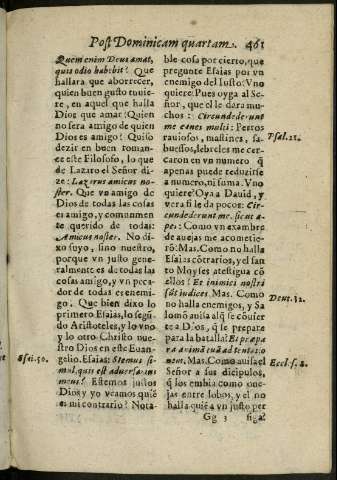 Post Dominicam quartam. 461
Quem enim Deus amat,
quis odio habebit? Que
hallara que aborrecer,
quien buen gusto tuuie-
re, en aquel que halla
Dios que amar? Quien
no sera amigo de quien
Dios es amigo? Quiso
dezir en buen romance
este Filosofo, lo que
de Lazaro el Señor di-
ze: Lazarus amicus no-
ster. Que vn amigo de
Dios de todas las cosas
es amigo, y comunmente
querido de todas:
Amicus noster. No di-
xo suyo, sino nuestro,
porque vn justo gene-
ralmente es de todas las
cosas amigo, y vn peca-
dor de todas es enemi-
go. Que bien dixo lo
primero Esaias, lo segū-
do Aristoteles, y lo vno
y lo otro Christo nue-
stro Dios en este Euan-
gelio. Esaias: Stemus si-
mul, quis est aduersarius
meus? Estemos justos
Dios y yo veamos quiē
es mi contrario? Nota-
Esai. 50.
ble cosa por cierto, que
pregunte Esaias por vn
enemigo del Iusto: Vno
quiere? Pues oyga al Se-
ñor, que el le dara mu-
chos: Circundederunt
me canes multi: Perros
rauiosos, mastines, sa-
buessos, lebreles me cer-
caron en vn numero q̄
apenas puede reduzirse
a numero, ni suma. Vno
quiere? Oya a Dauid, y
vera si le da pocos: Cir-
cundederunt me sicut a-
pes: Como vn exambre
de auejas me acometie-
rō: Mas. Como no halla
Esaias cōtrarios, y el san
to Moyses atestigua cō
ellos? Et inimici nostri
sūt iudices. Mas. Como
no halla enemigos, y Sa
lomō auisa al q̄ se cōuier
te a Dios, q̄ se prepare
para la batalla? Et præpa
ra animā tuā ad tentatio
nem. Mas. Como auisa el
Señor a sus dicipulos,
q̄ los embia como oue-
jas entre lobos, y el no
halla quiē a vn justo per
Psal. 21.
Deut. 32.
Eccles. 2.
Gg 3 siga?